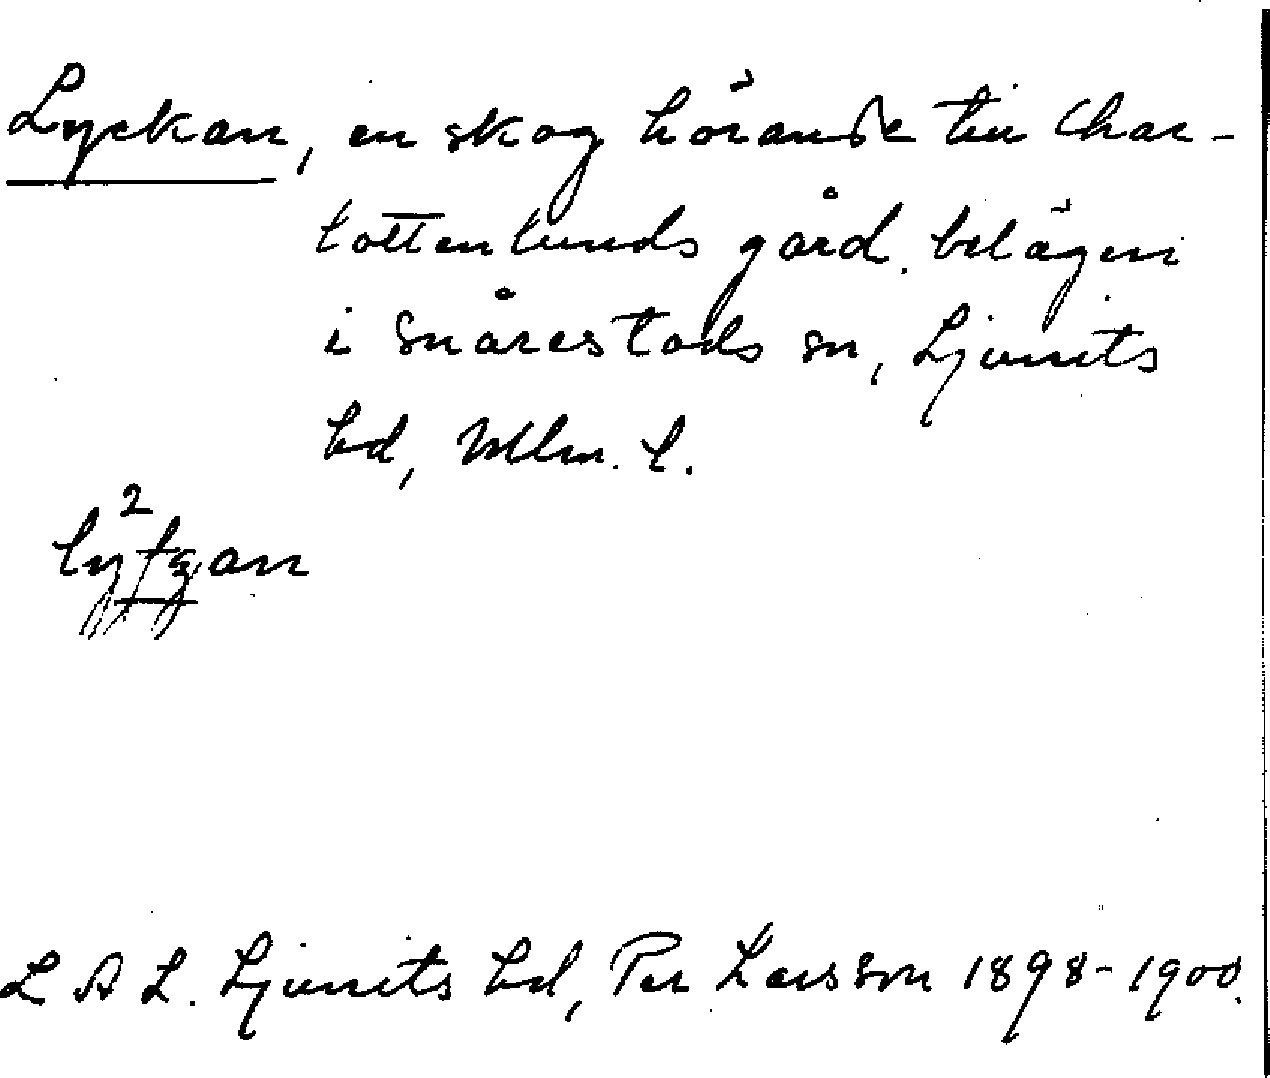 Lyckan, en skog hörande till Char-
lottenlunds gård, belägen
i Snårestads sn, Ljunits
hd, Mlm. l.
L A L. Ljunits hd, Per Larsson 1898-1900.